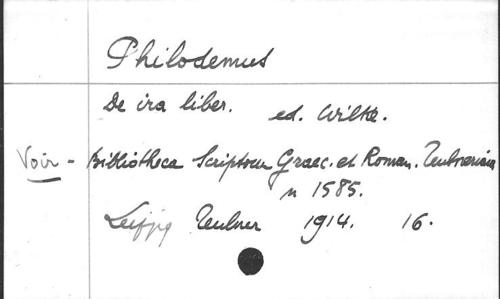 Philodemus
De ira liber. ed. Wilke.
Voir - Bibliotheca Scriptorum Graec. et Roman. Teubneriana
n 1585.
Leipzig Teubner 1914. 16.